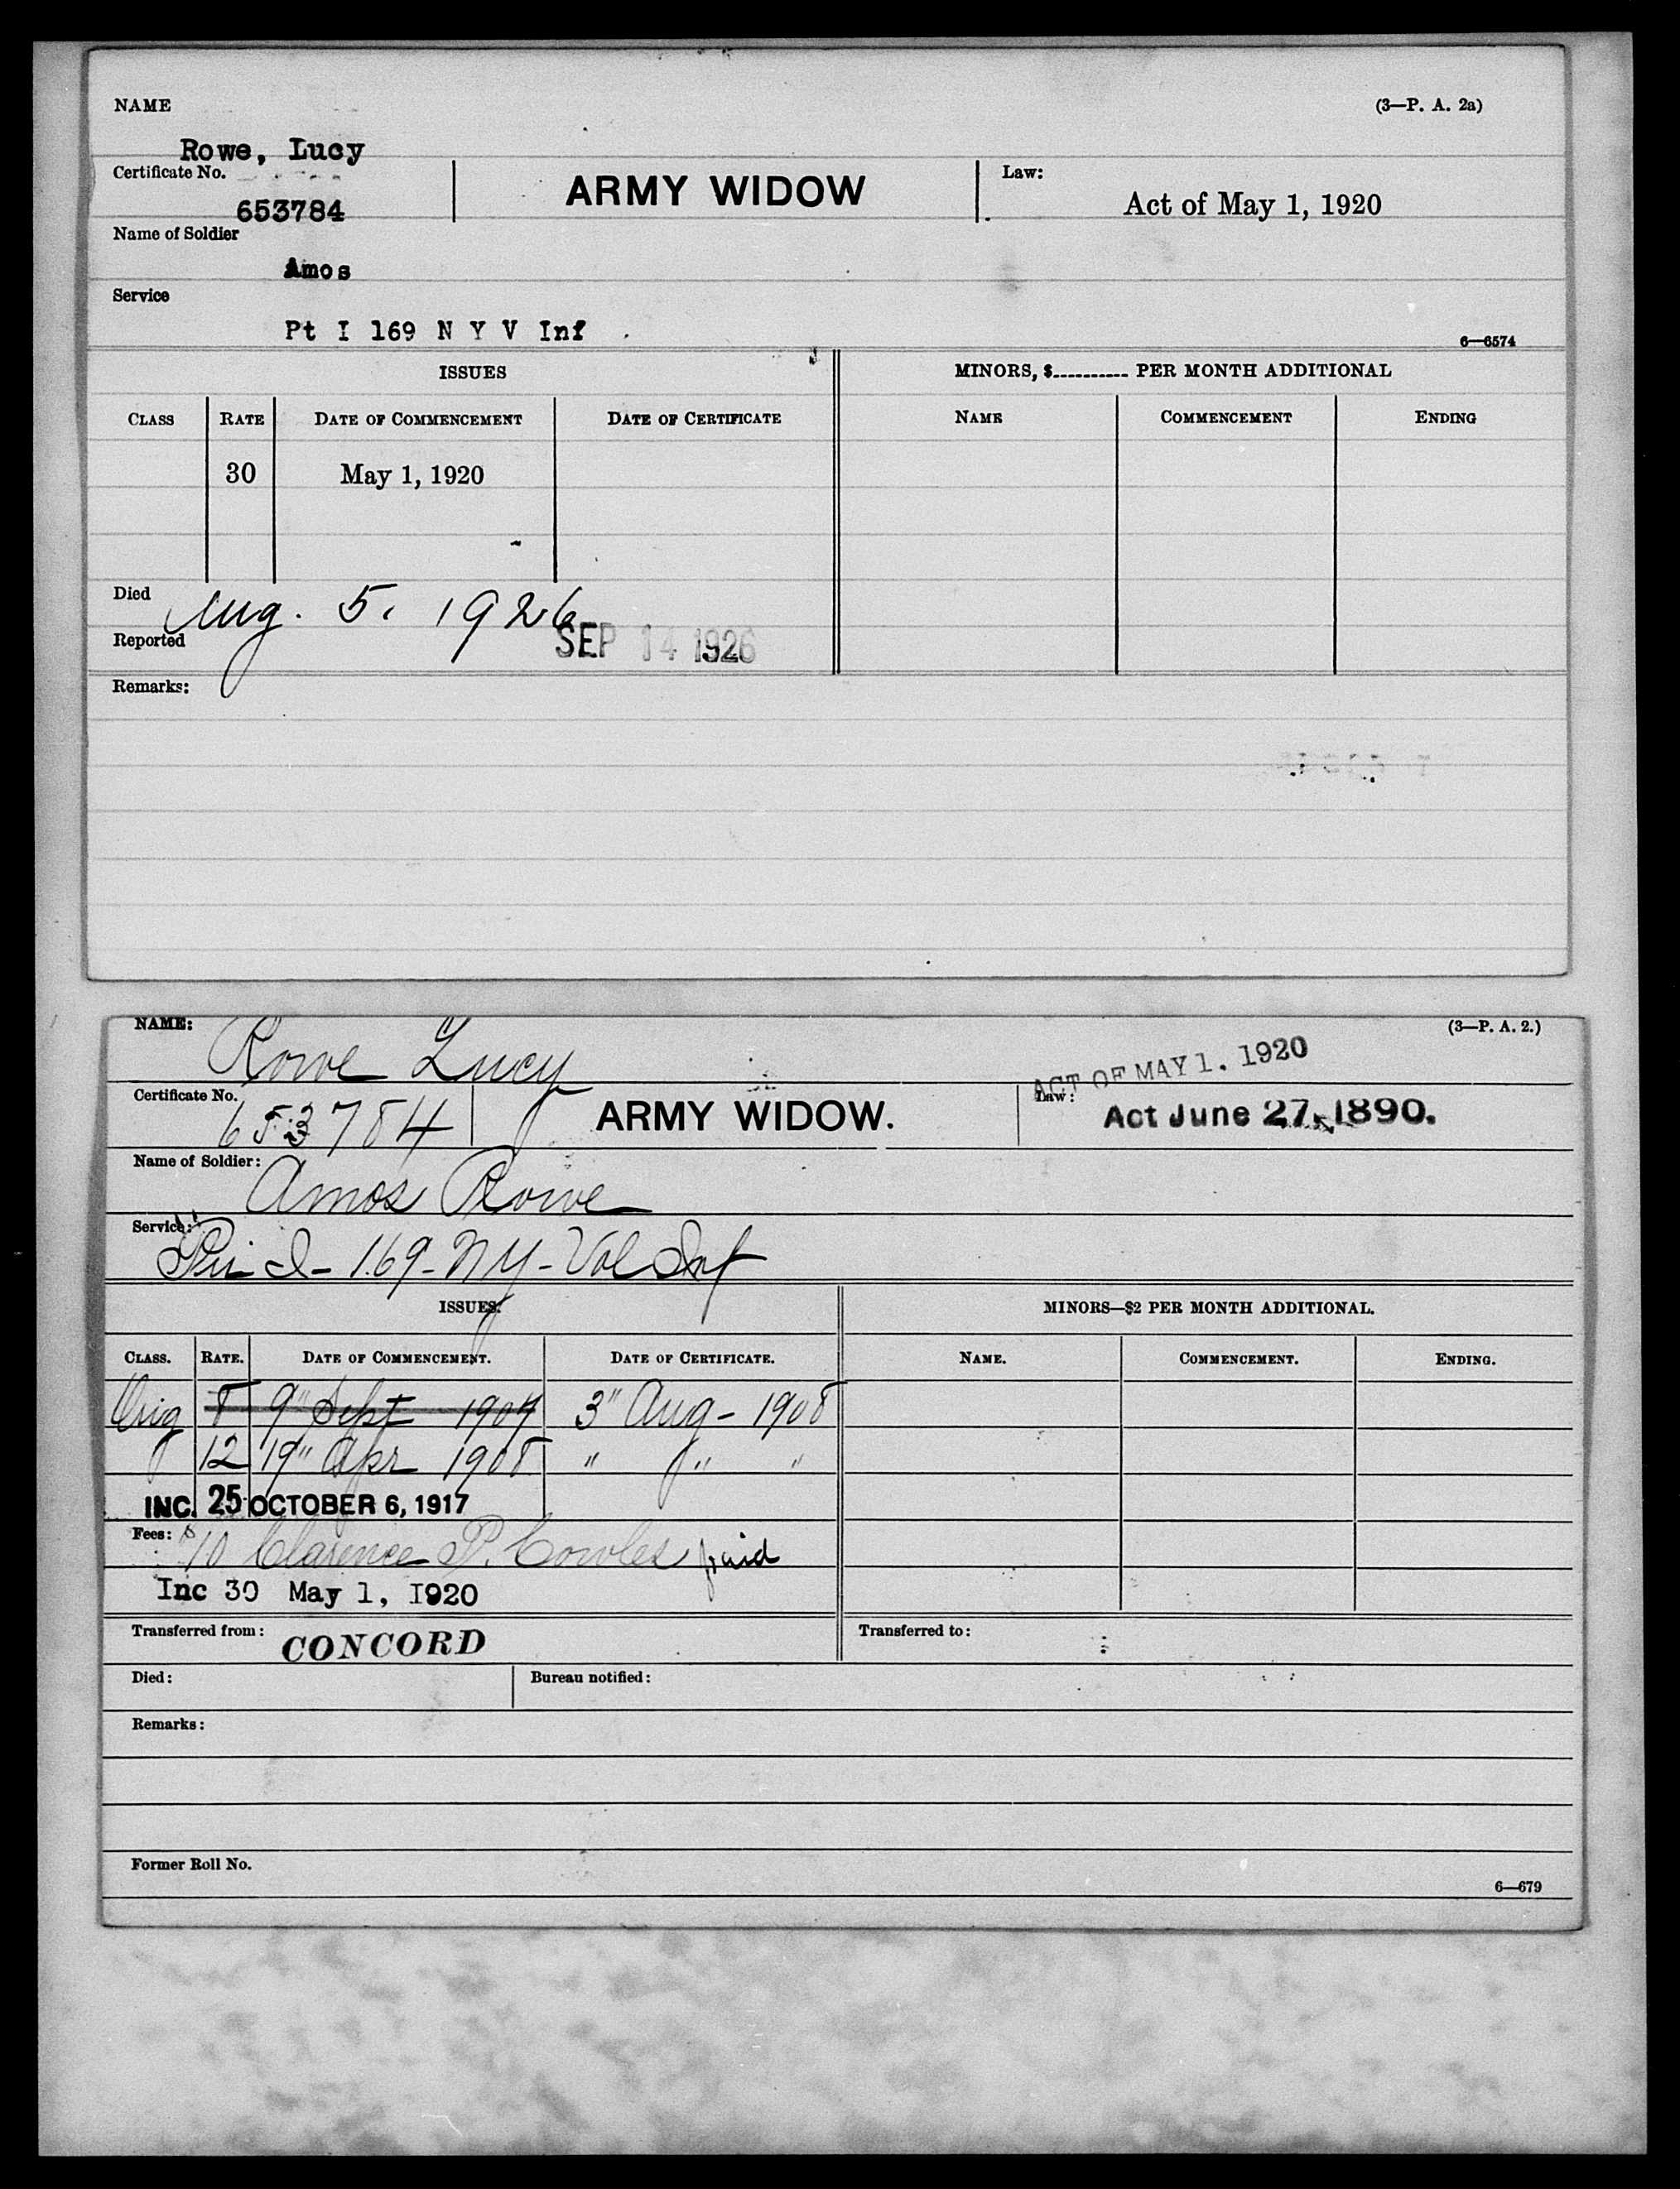 NAME (3—P. A. 2a)
Rowe, Lucy
Certificate No. ARMY WIDOW Law:
653784 Act of May 1, 1920
Name of Soldier
Amos
Service
Pt I 169 N Y V Inf
6—6574
ISSUES MINORS, $---------- PER MONTH ADDITIONAL
CLASS RATE DATE OF COMMENCEMENT DATE OF CERTIFICATE NAME COMMENCEMENT ENDING
30 May 1, 1920
Died Aug. 5, 1926
Reported SEP 14 1926
Remarks:
NAME: Rowe Lucy (3—P. A. 2.)
ACT OF MAY 1. 1920
Certificate No. 653784 ARMY WIDOW. Law: Act June 27, 1890.
Name of Soldier: Amos Rowe
Service:
Pri I - 169 - NY - Vol Inf
ISSUES. MINORS—$2 PER MONTH ADDITIONAL.
CLASS. RATE. DATE OF COMMENCEMENT. DATE OF CERTIFICATE. NAME. COMMENCEMENT. ENDING.
Orig 8 9" Sept 1907 3" Aug - 1908
12 19" Apr 1908 " " "
INC. 25 OCTOBER 6, 1917
Fees: $10 Clarence P. Cowles paid
Inc 30 May 1, I920
Transferred from: CONCORD Transferred to:
Died: Bureau notified:
Remarks:
Former Roll No.
6—679